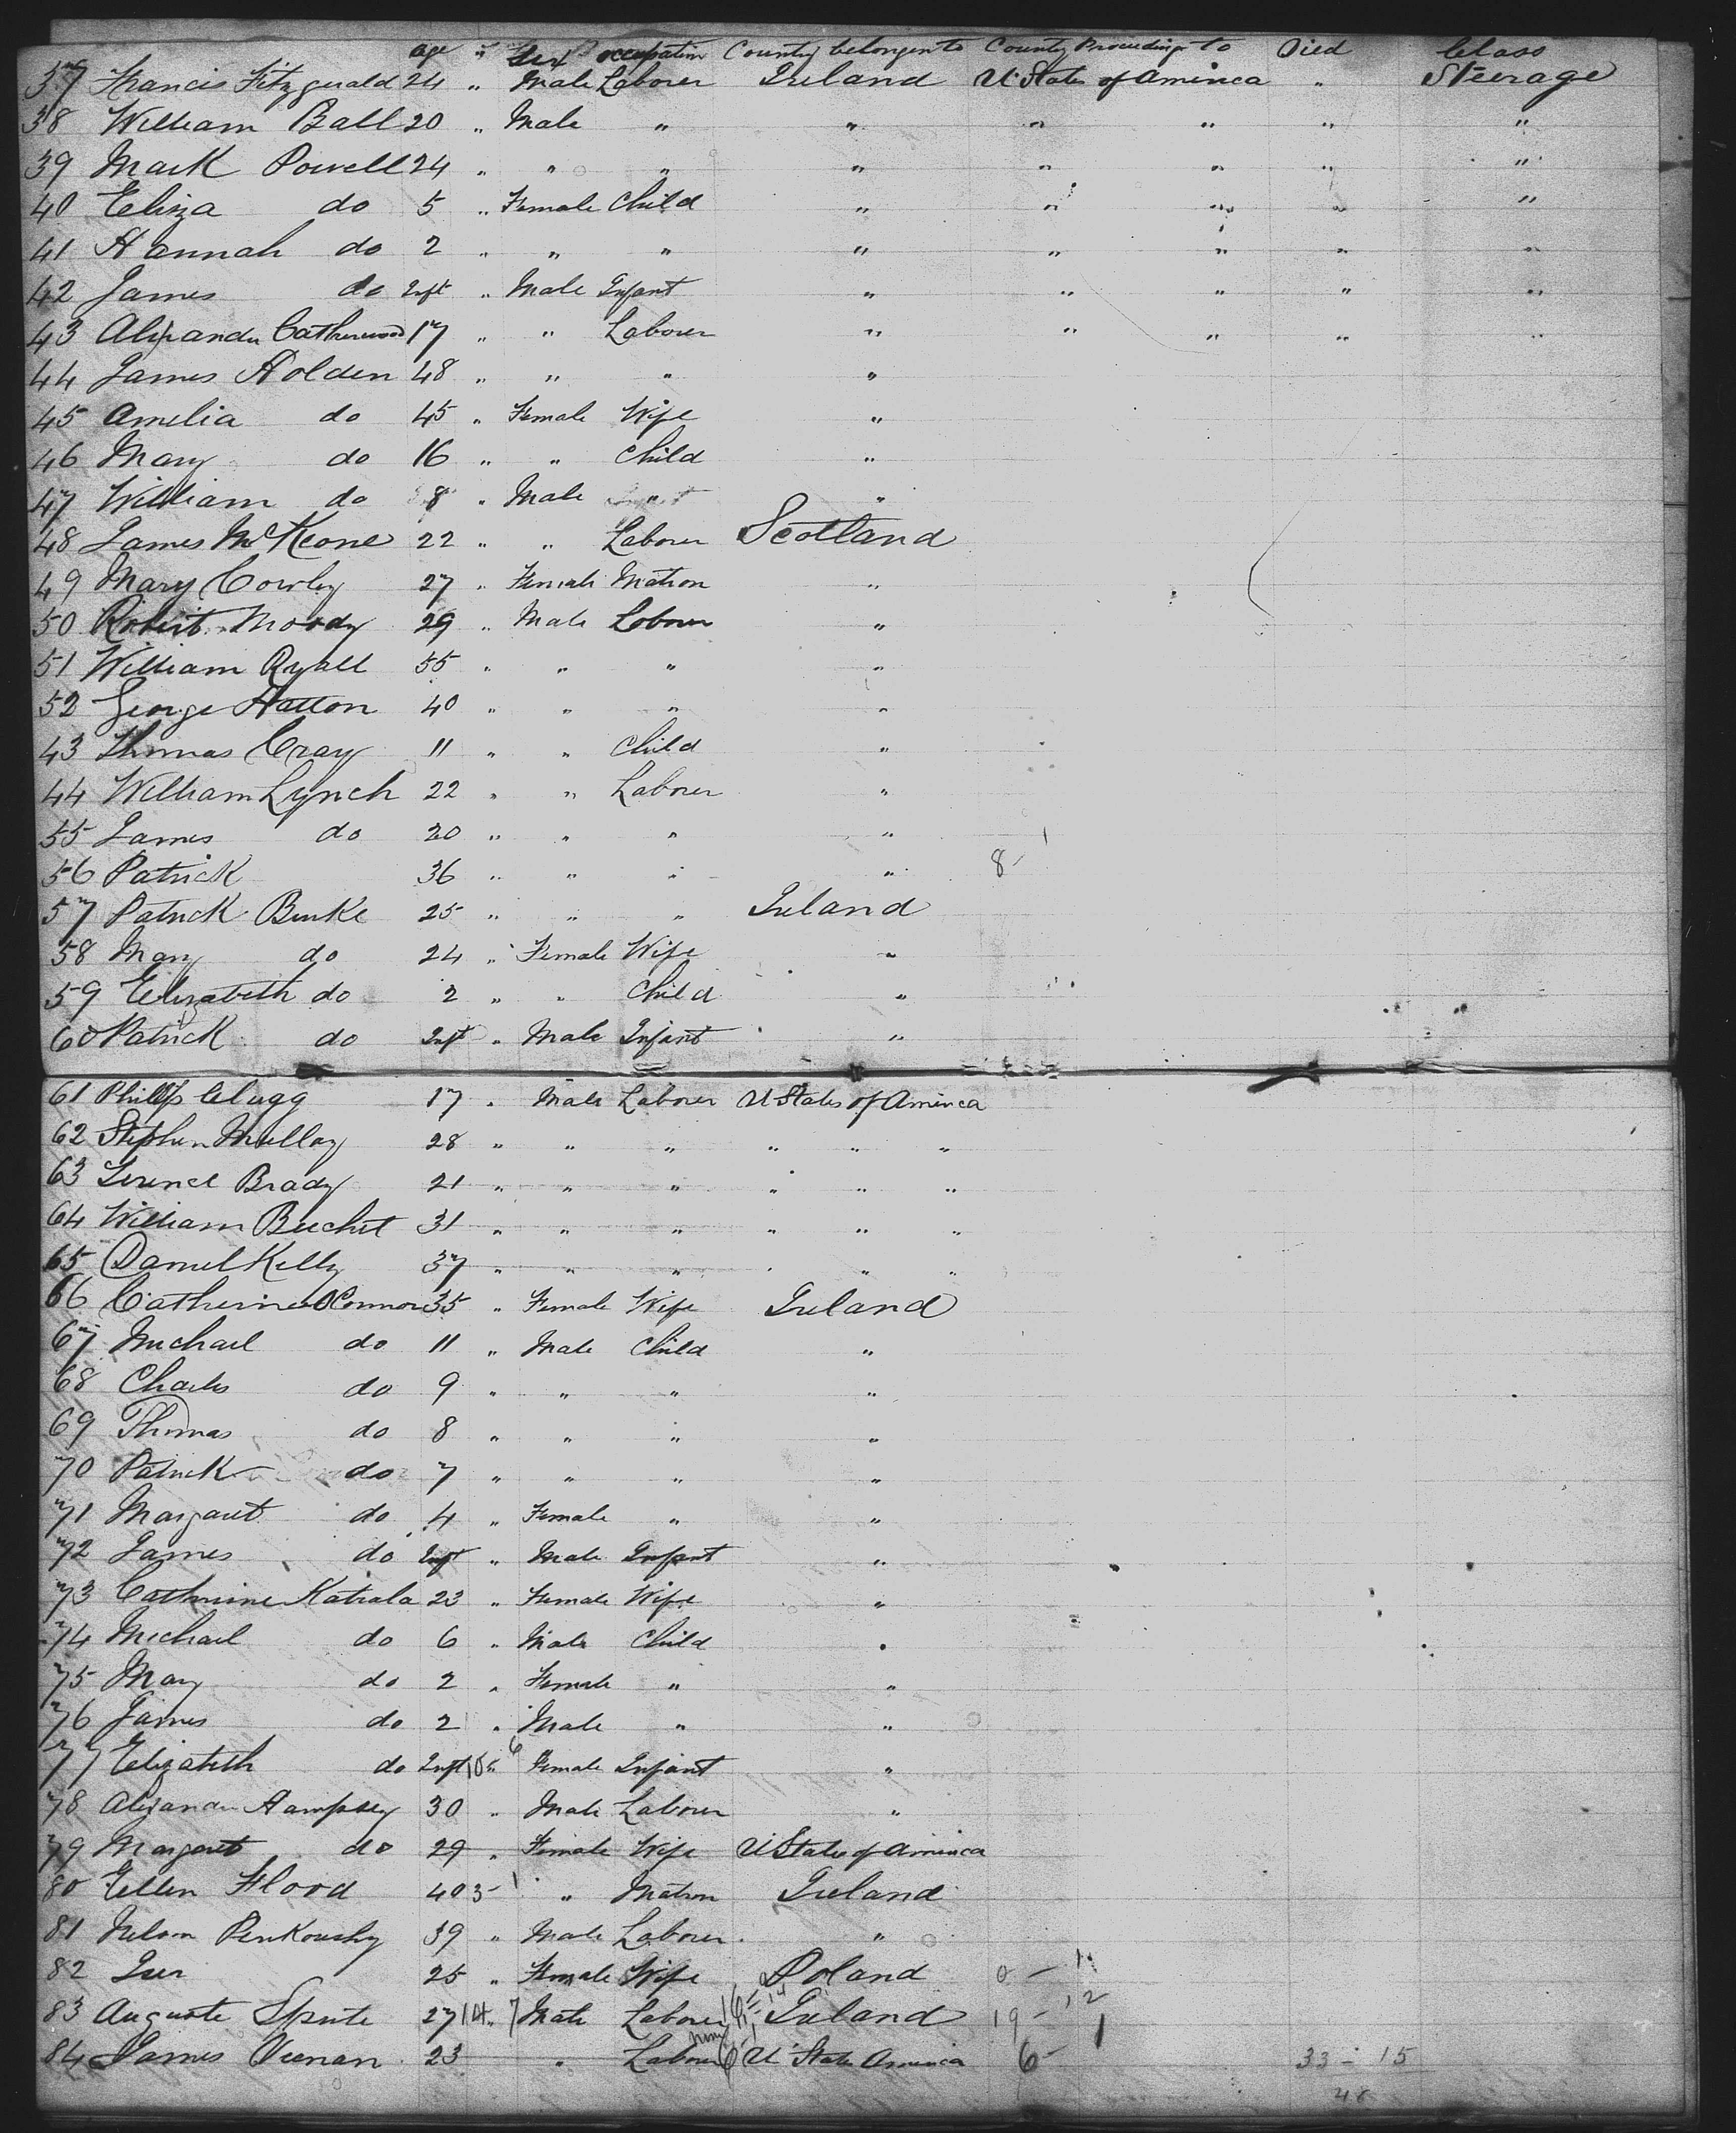 age " Sex occupation County belongen to County Proceeding to Died Class
37 Francis Fitzgerald 24 " Male Laborer Ireland U States of America " Steerage
38 William Ball 20 " Male " " " " " "
39 Mark Powell 24 " " " " " " " "
40 Eliza do 5 " Female Child " " " " "
41 Hannah do 2 " " " " " " " "
42 James do Inft " Male Infant " " " " "
43 Alexander Catherwood 17 " " Laborer " " " " "
44 James Holden 48 " " " "
45 Amelia do 45 " Female Wife "
46 Mary do 16 " " Child "
47 William do 8 " Male " "
48 James McKeone 22 " " Laborer Scotland
49 Mary Cowley 27 " Female Matron "
50 Robert Moody 29 " Male Laborer "
51 William Ryall 55 " " " "
52 George Hatton 40 " " " "
43 Thomas Cray 11 " " Child "
44 William Lynch 22 " " Laborer "
55 James do 20 " " " "
56 Patrick 36 " " " " 8-
57 Patrick Burke 25 " " " Ireland
58 Mary do 24 " Female Wife "
59 Elizabeth do 2 " " Child "
60 Patrick do Inft " Male Infant "
61 Phillip Clugg 17 " Male Laborer U States of America
62 Stephen Mulloy 28 " " " " " "
63 Terence Brady 21 " " " " " "
64 William Buchet 31 " " " " " "
65 Daniel Kelly 37 " " " " " "
66 Catherine OConnor 35 " Female Wife Ireland
67 Michael do 11 " Male Child "
68 Charles do 9 " " " "
69 Thomas do 8 " " " "
70 Patrick do 7 " " " "
71 Margaret do 4 " Female " "
72 James do Inft " Male Infant "
73 Catherine Katiala 23 " Female Wife "
74 Michael do 6 " Male Child "
75 Mary do 2 " Female " "
76 James do 2 " Male " "
77 Elizabeth do Inft 6 Female Infant "
78 Alexander Hampsey 30 " Male Laborer "
79 Margaret do 29 " Female Wife U States of America
80 Ellen Flood 40 3- 1 " Matron Ireland
81 Nelson Penkoushy 39 " Male Laborer "
82 25 " Female Wife Poland
83 Auguste Spute 27 14 " 7 Male Laborer Ireland 19 - 12
84 James Keenan 23 " Laborer U States America 6- 33 - 15
48